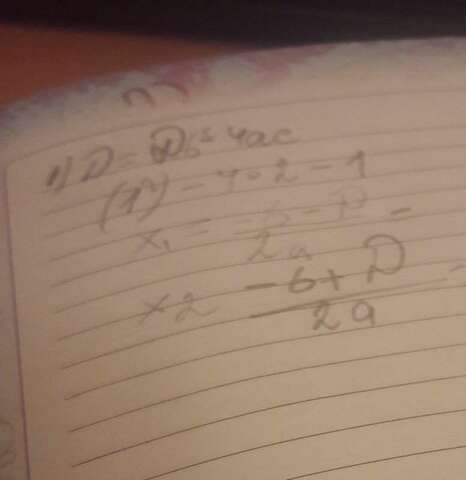 1) D = b² - 4ac
(1²) - 4 · 2 - 1
x₁ = -b - D / 2a =
x2 -b + D / 2a